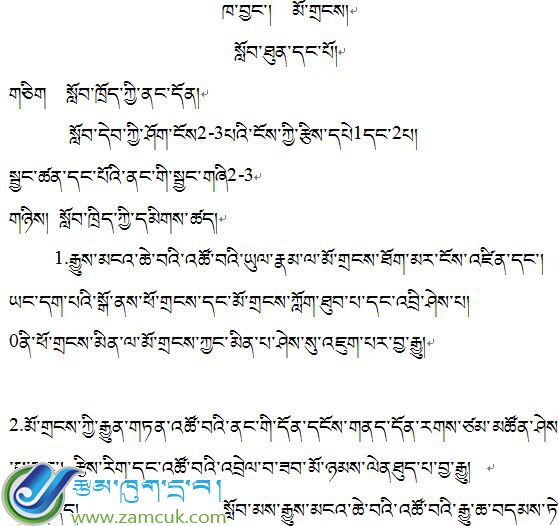 ཁ་བྱང་།  མོ་གྲངས།
སློབ་ཐུན་དང་པོ།
གཅིག  སློབ་ཁྲིད་ཀྱི་ནང་དོན།
སློབ་དེབ་ཀྱི་ཤོག་ངོས2-3པའི་ངོས་ཀྱི་རྩིས་དཔེ1དང་2པ།
སྦྱང་ཚན་དང་པོའི་ནང་གི་སྦྱང་གཞི2-3
གཉིས། སློབ་ཁྲིད་ཀྱི་དམིགས་ཚད།
1.རྒྱུས་མངའ་ཆེ་བའི་འཚོ་བའི་ཡུལ་རྣམ་ལ་མོ་གྲངས་ཐོག་མར་ངོས་འཛིན་དང་།
ཡང་དག་པའི་སྒོ་ནས་ཕོ་གྲངས་དང་མོ་གྲངས་ཀློག་ཐུབ་པ་དང་འབྲི་ཤེས་པ།
0ནི་ཕོ་གྲངས་མིན་ལ་མོ་གྲངས་ཀྱང་མིན་པ་ཤེས་སུ་འཇུག་པར་བྱ་རྒྱུ།
2.མོ་གྲངས་ཀྱི་རྒྱུན་གཏན་འཚོ་བའི་ནང་གི་དོན་དངོས་གནད་དོན་རགས་ཙམ་མཚོན་ཤེས
རྩིས་རིག་དང་འཚོ་བའི་འབྲེལ་བ་ཟབ་མོ་ཉམས་ལེན་ཐུད་པ་བྱ་རྒྱུ།
སློབ་མས་རྒྱུས་མངའ་ཆེ་བའི་འཚོ་བའི་རྒྱུ་ཆ་བདམས་ཏེ
ཟམ་ཁུག་དྲ་བ།
www.zamcuk.com